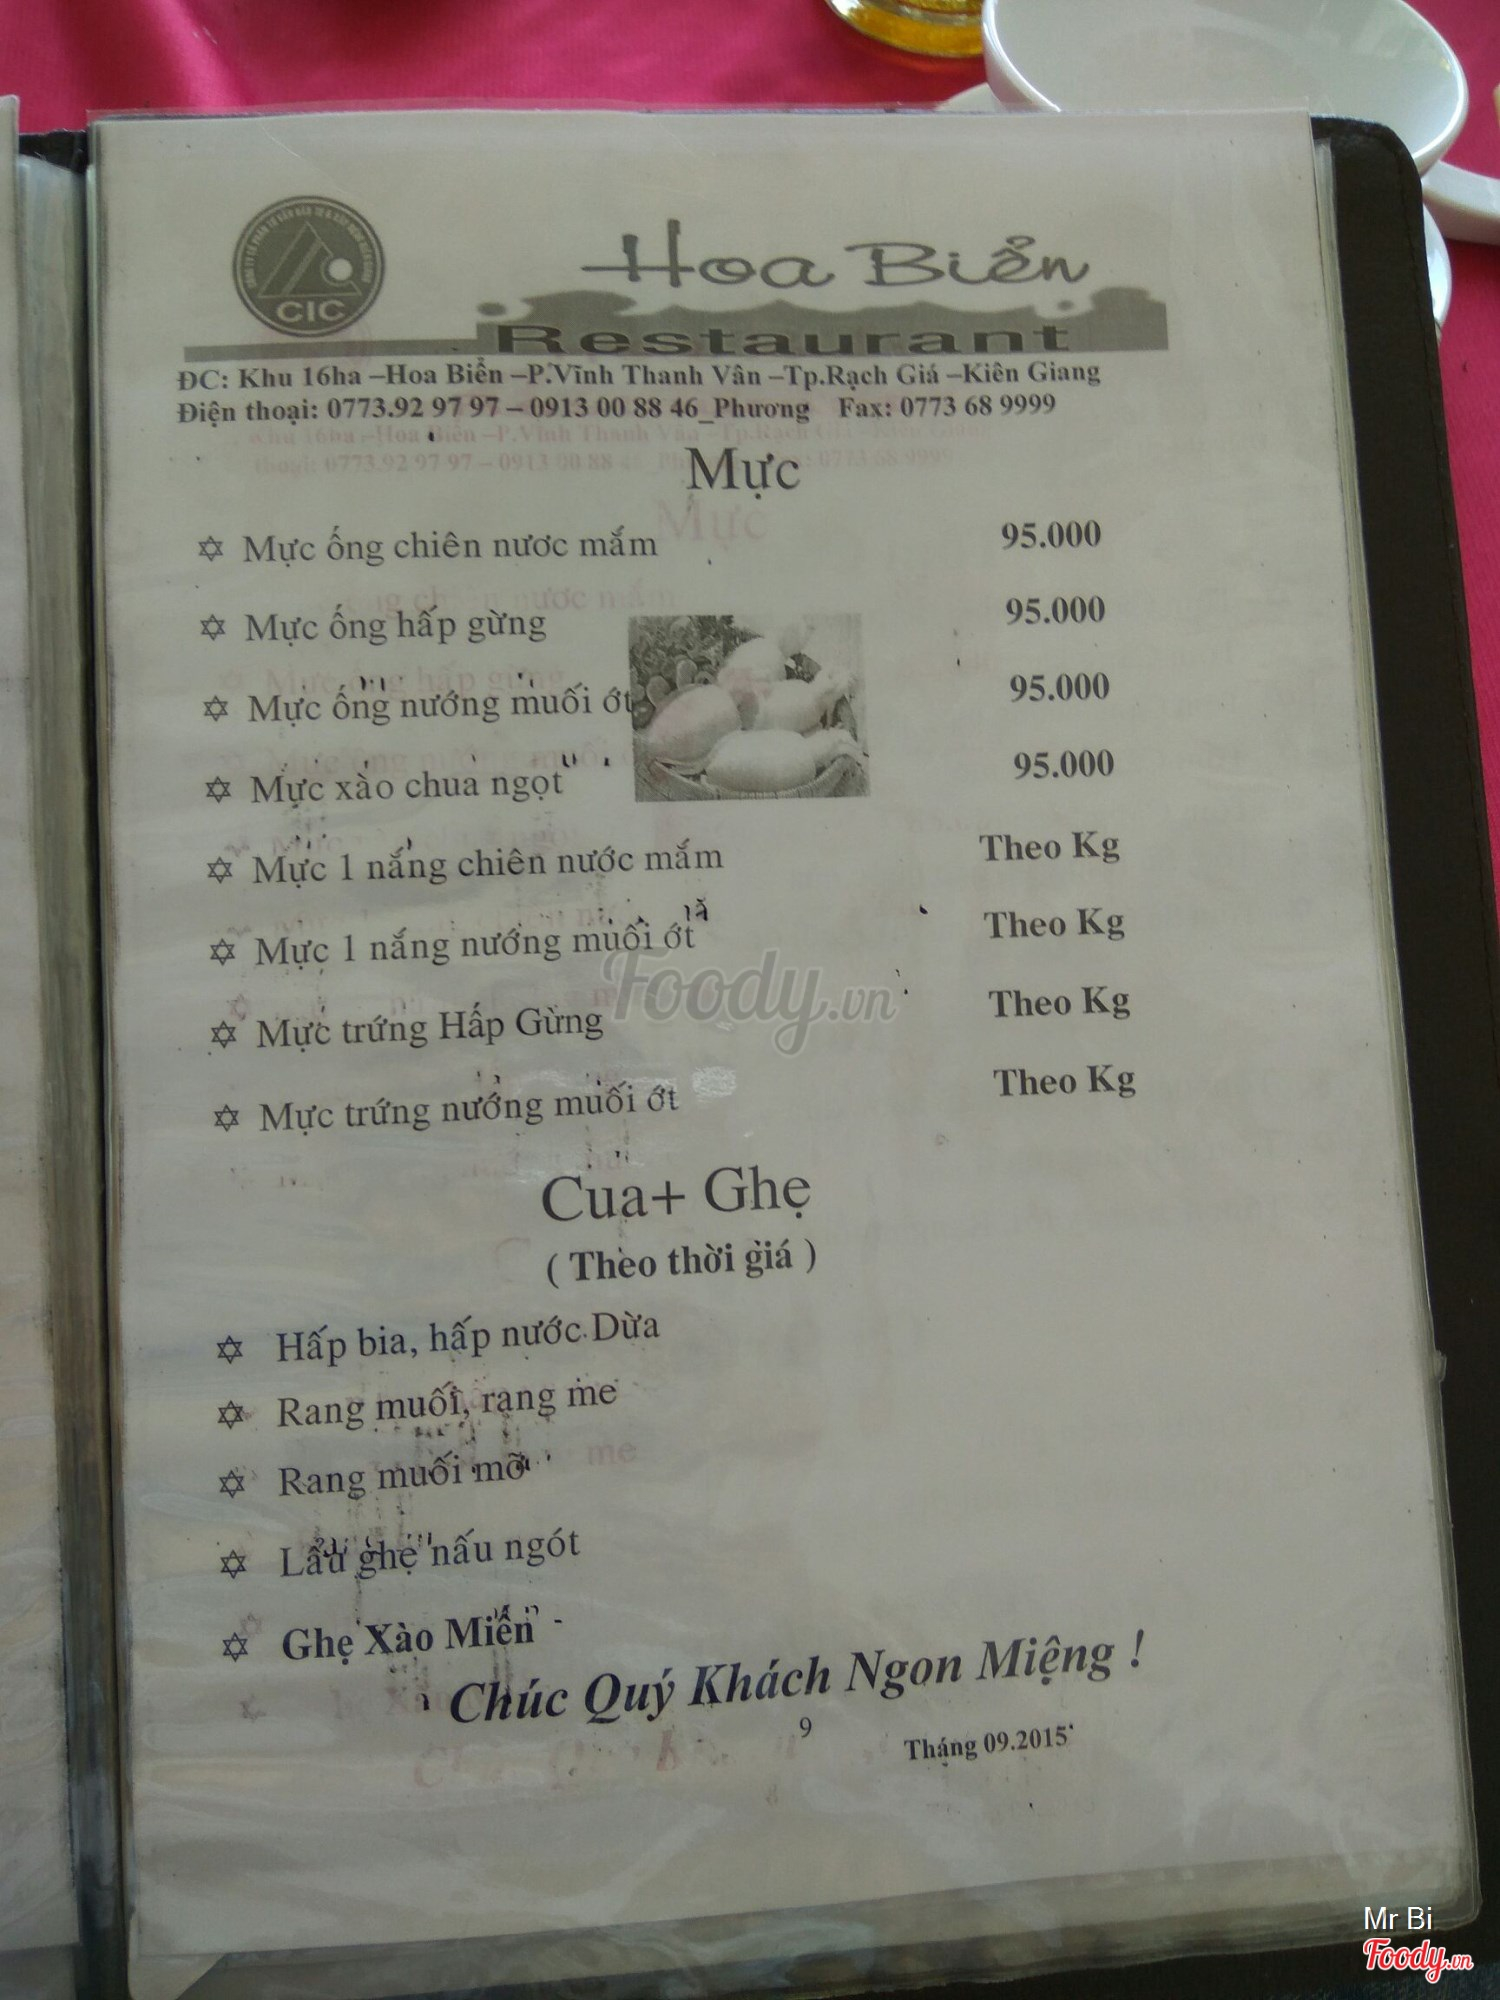 CIC
Hoa Biển
Restaurant
ĐC: Khu 16ha –Hoa Biển –P.Vĩnh Thanh Vân –Tp.Rạch Giá –Kiên Giang
Điện thoại: 0773.92 97 97 – 0913 00 88 46_Phương Fax: 0773 68 9999
Mực
✡ Mực ống chiên nươc mắm 95.000
✡ Mực ống hấp gừng 95.000
✡ Mực ống nướng muối ớt 95.000
✡ Mực xào chua ngọt 95.000
✡ Mực 1 nắng chiên nước mắm Theo Kg
✡ Mực 1 nắng nướng muối ớt Theo Kg
✡ Mực trứng Hấp Gừng Theo Kg
✡ Mực trứng nướng muối ớt Theo Kg
Cua+ Ghẹ
( Theo thời giá )
✡ Hấp bia, hấp nước Dừa
✡ Rang muối, rang me
✡ Rang muối mỡ
✡ Lẩu ghẹ nấu ngót
✡ Ghẹ Xào Miến
Chúc Quý Khách Ngon Miệng !
9
Tháng 09.2015
Foody.vn
Mr Bi
Foody.vn